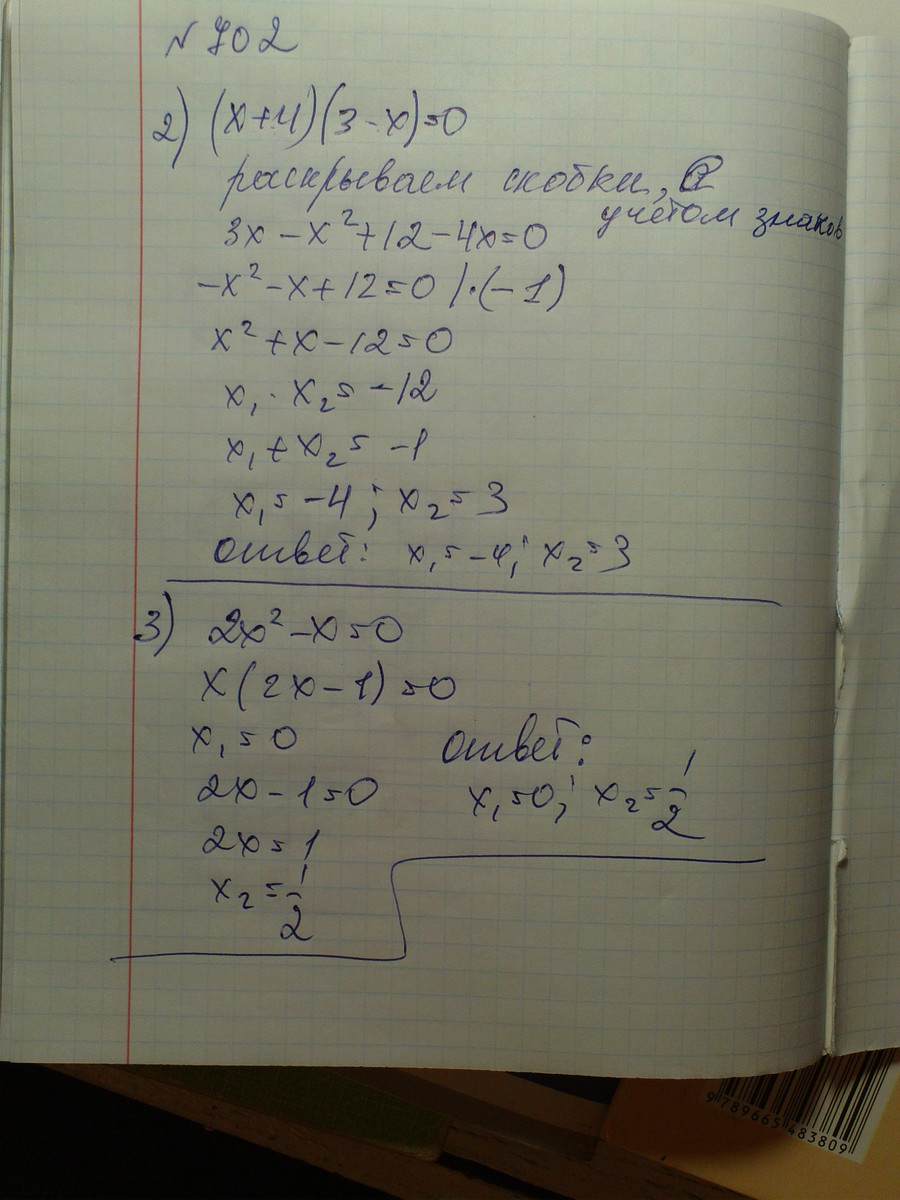 № 702
2) (x+4)(3-x)=0
раскрываем скобки, с
учётом знаков
3x-x²+12-4x=0
-x²-x+12=0 |·(-1)
x²+x-12=0
x₁·x₂=-12
x₁+x₂=-1
x₁=-4; x₂=3
ответ: x₁=-4; x₂=3
3) 2x²-x=0
x(2x-1)=0
x₁=0
2x-1=0
2x=1
x₂=1/2
ответ:
x₁=0; x₂=1/2
9789665483809